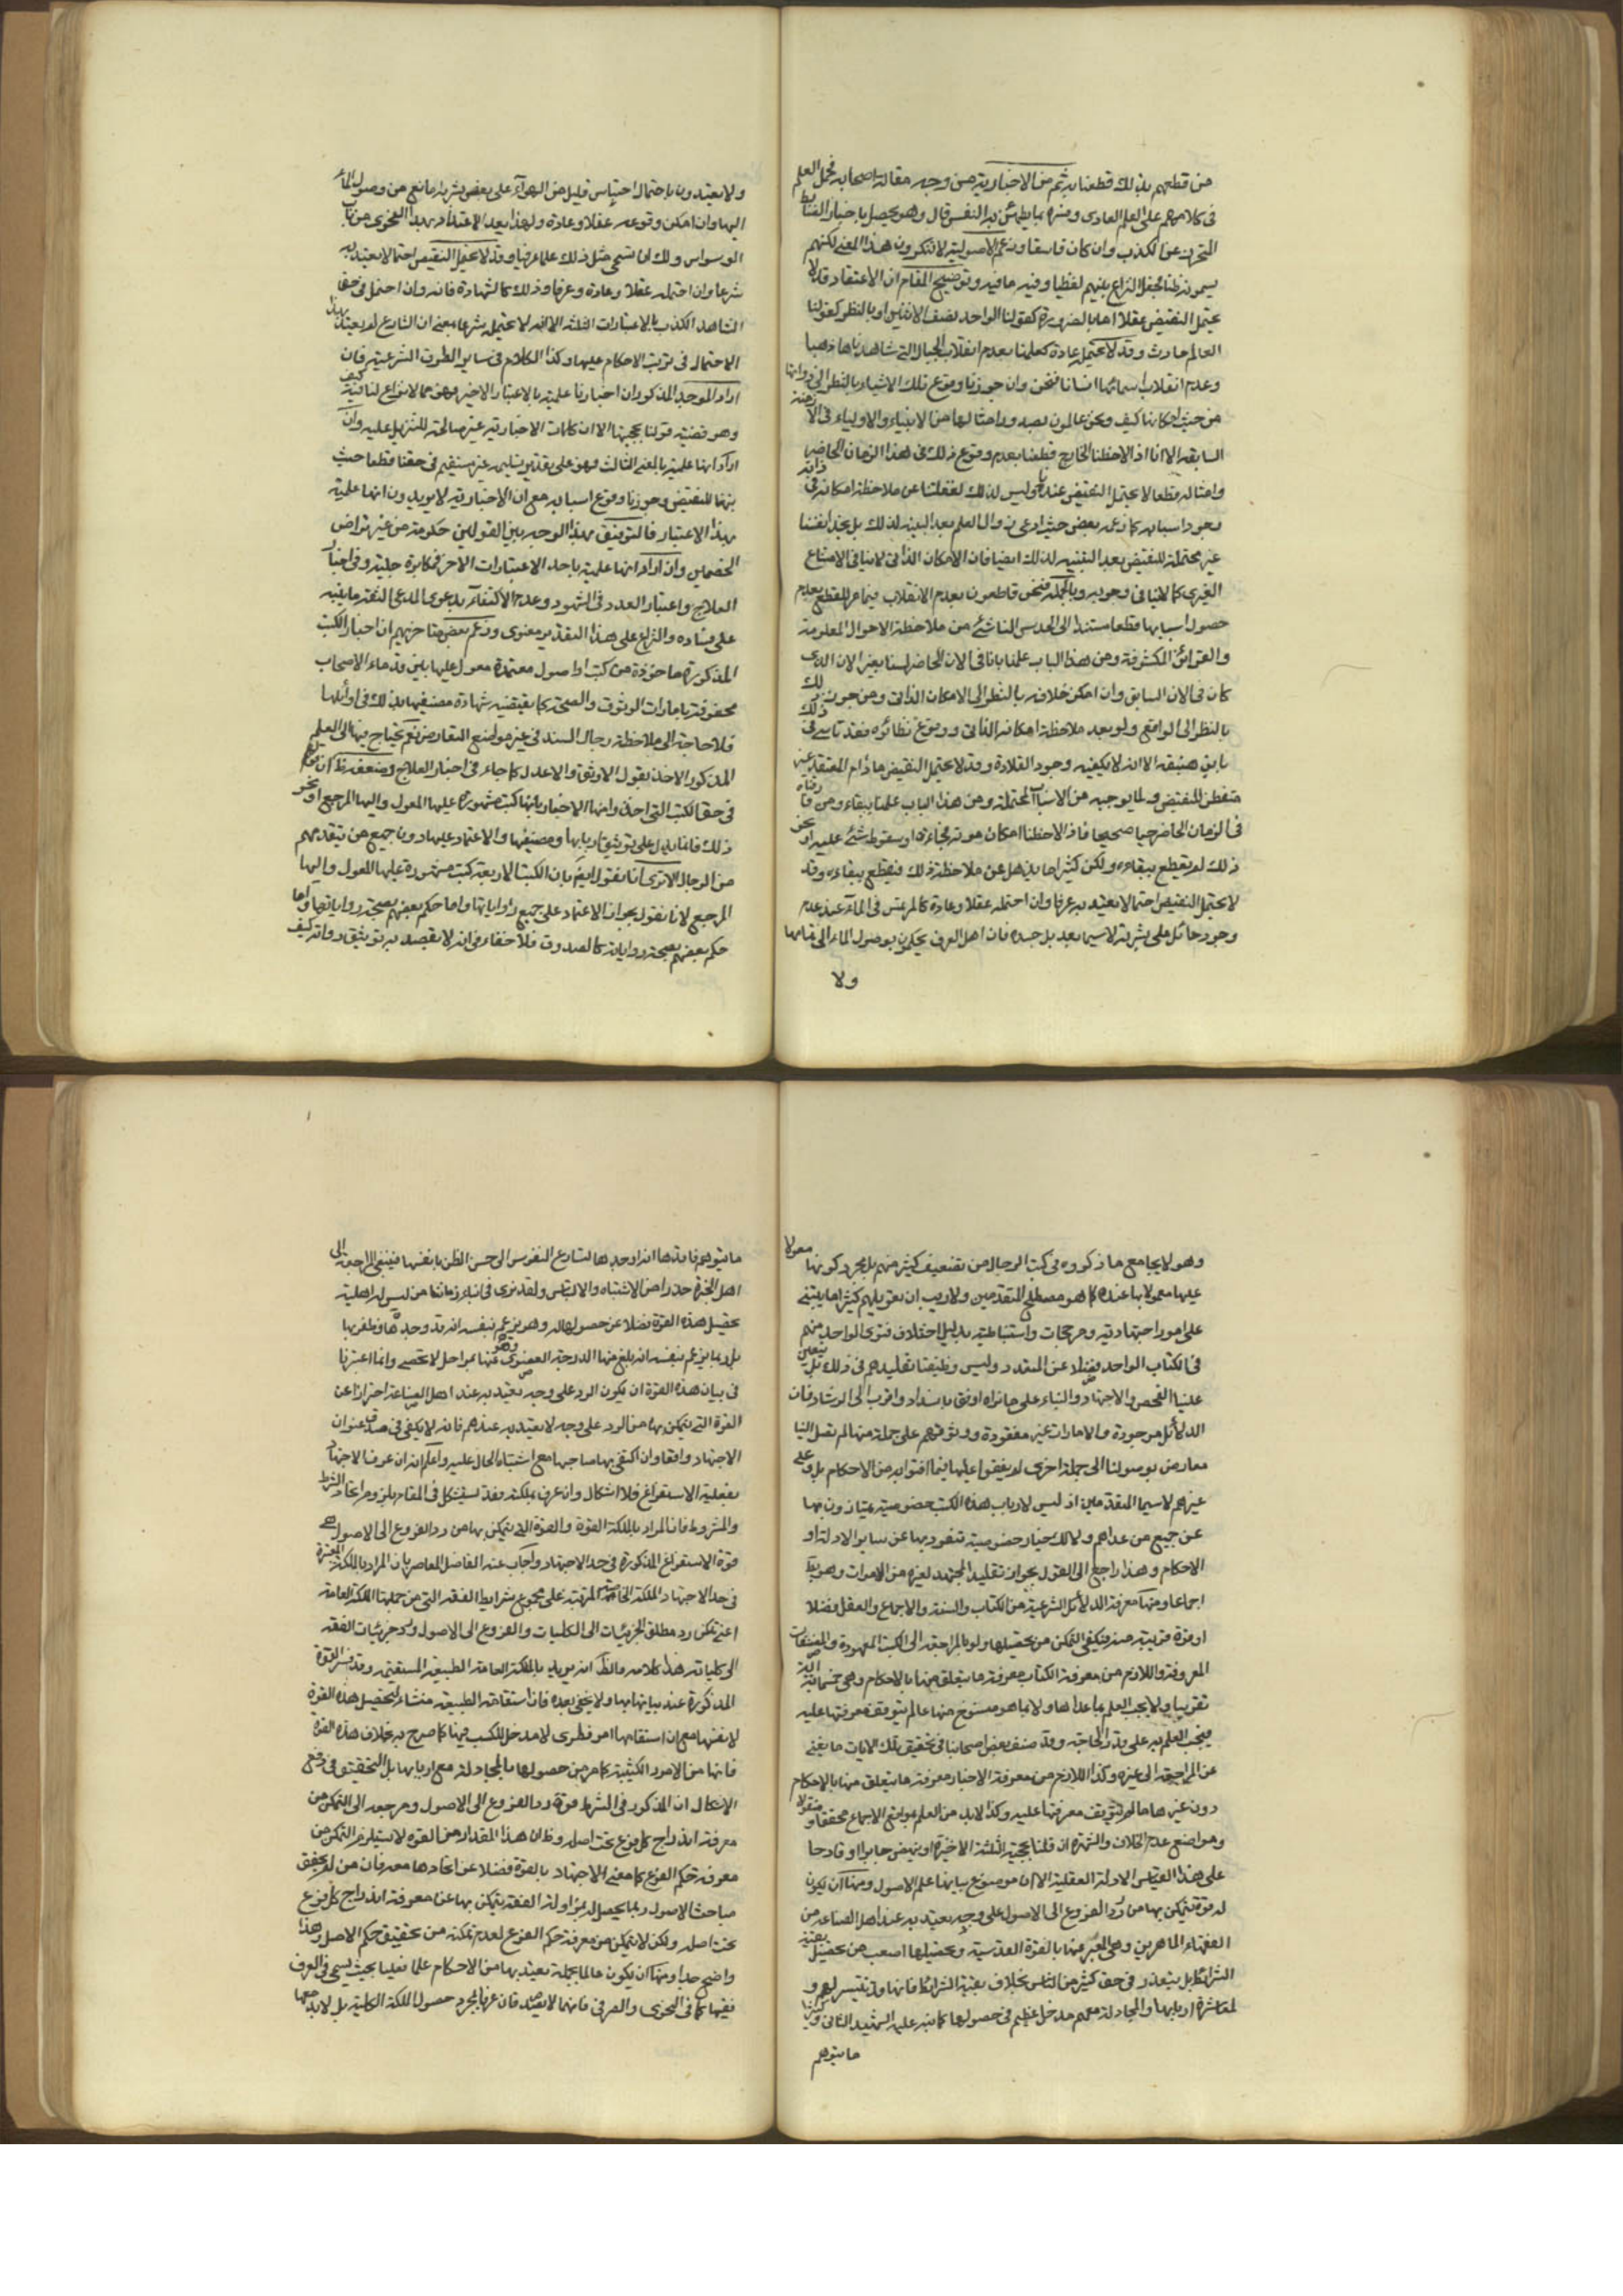 من قطعهم بذلك قطعنا به ثم من الاخبارية من وجه مقالة اصحابه فحمل العلم
في كلامهم على العلم العادي وفسره بما يطمئن به النفس قال وهو يحصل باخبار الضابط
المتحرز عن الكذب وان كان فاسقا وزعم الاصولية لا تنكرون هذا المعنى لكنهم
يسمونه ظنا فجعل النزاع بينهم لفظيا وفيه ما فيه وتوضيح المقام ان الاعتقاد قد لا
يحتمل النقيض عقلا اما بالضرورة كقولنا الواحد نصف الاثنين او بالنظر كقولنا
العالم حادث وقد لا يحتمله عادة كعلمنا بعدم انقلاب الجبال التي شاهدناها ذهبا
وعدم انقلاب اناسا فنحن وان جوزنا وقوع تلك الاشياء بالنظر الى ذواتها
من حيث امكانها كيف ونحن عالمون بصدور امثالها من الانبياء والاولياء في الازمنة
السابقة الا انا اذا لاحظنا الخارج قطعنا بعدم وقوع ذلك في هذا الزمان الحاضر
وامثاله قطعا لا يحتمل النقيض عندنا وليس ذلك لغفلتنا عن ملاحظة امكانه في ذاته
وجود اسبابه كما زعمه بعض حيث ادعى زوال العلم بعد التنبيه لذلك بل نجد انفسنا
غير محتملة للنقيض بعد التنبيه لذلك ايضا فان الامكان الذاتي لا ينافي الامتناع
الغيري كما لا ينافي وجوبه وبالجملة فنحن قاطعون بعدم الانقلاب فيما مر للقطع بعدم
حصول اسبابها قطعا مستندا الى الحدس الناشئ من ملاحظة الاحوال المعلومة
والقرائن المكشوفة ومن هذا الباب علمنا بانا في الان الحاضر لسنا بغير الان الذي
كان في الان السابق وان امكن خلافه بالنظر الى الامكان الذاتي ومن جوز ذلك
بالنظر الى الواقع ولو بعد ملاحظة امكانه الذاتي ووقوع نظائره فقد تاسى في ذلك
بابن هبنقة الا انه لا يكفيه وجود القلادة وقد لا يحتمل النقيض ما دام المعتقد غير
متفطن للنقيض ولما يوجبه من الاسباب المحتملة ومن هذا الباب علمنا ببقاء من فارقناه
في الزمان الحاضر حيا صحيحا فاذا لاحظنا امكان موته فجاءة او سقوط شئ عليه او نحو
ذلك لم نقطع ببقاءه ولكن كثيرا ما يذهل عن ملاحظة ذلك فيقطع ببقاءه وقد
لا يحتمل النقيض احتمالا يعتد به عرفا وان احتمله عقلا وعادة كالمرتمس في الماء عند عدم
وجود حائل على بشرته لا سيما بعد بل جسده فان اهل العرف يحكمون بوصول الماء الى تمامها
ولا
ولا يعتدون باحتمال احتباس قليل من الهواء على بعض بشرته مانع من وصول الماء
اليها وان امكن وقوعه عقلا وعادة ولهذا يعد الاعتداد بهذا النحو من باب
الوسواس ولك ان تسمي مثل ذلك علما عرفيا وقد لا يحتمل النقيض احتمالا يعتد به
شرعا وان احتمله عقلا وعادة وعرفا وذلك كالشهادة فانه وان احتمل في حق
الشاهد الكذب بالاعتبارات الثلثة الا انه لا يحتمله شرعا بمعنى ان الشارع لم يعتد بهذا
الاحتمال في ترتب الاحكام عليها وكذا الكلام في سائر الطرق الشرعية فان
اراد الموجه المذكور ان اخبارنا علمية بالاعتبار الاخير فهو مما لا نزاع لنا فيه كيف
وهو قضية قولنا بحجيتها الا ان كلمات الاخبارية غير صالحة للتنزيل عليه وان
اراد انها علمية بالمعنى الثالث فهو على تقدير تسليمه غير مستقيم في حقنا قطعا حيث
تنبهنا للنقيض وجوزنا وقوع اسبابه مع ان الاخبارية لا يريدون انها علمية
بهذا الاعتبار فالتوفيق بهذا الوجه بين القولين حكومة من غير تراض
الخصمين وان اراد انها علمية باحد الاعتبارات الاخر فمكابرة جلية وفي اخبار
العلاج واعتبار العدد في الشهود وعدم الاكتفاء بدعوى المدعي الثقة ما ينبه
على فساده والنزاع على هذا التقدير معنوي وزعم بعض متاخريهم ان اخبار الكتب
المذكورة ماخوذة من كتب اصول معتمدة معول عليها بين قدماء الاصحاب
محفوفة بامارات الوثوق والصحة كما يقتضيه شهادة مصنفيها بذلك في اوائلها
فلا حاجة الى ملاحظة رجال السند في غير مواضع التعارض نعم يحتاج فيها الى العلم
المذكور الاخذ بقول الاوثق والاعدل كما جاء في اخبار العلاج وضعفه ظ
في حق الكتب التي اخذوا منها الاخبار بانها كتب مشهورة عليها المعول واليها المرجع او نحو
ذلك فانما يدل على توثيق اربابها ومصنفيها والاعتماد عليها دون جميع من يتقدمهم
من الرجال الا ترى انا نقول ايضا بان الكتب الاربعة كتب مشهورة عليها المعول واليها
المرجع لانا نقول بجواز الاعتماد على جميع رواياتها واما حكم بعضهم بصحة رواياتها واما
حكم بعضهم بصحة رواياته كالصدوق فلا خفاء في انه لا يقصد به توثيق رواته كيف
وهو لا يجامع ما ذكروه في كتب الرجال من تضعيف كثير منهم بل مجرد كونها معولا
عليها معمولا بها عنده كما هو مصطلح المتقدمين ولا ريب ان تعويلهم كثيرا ما يبتنى
على امور اجتهادية ومرجحات واستنباطية بدليل اختلاف فتوى الواحد منهم
في الكتاب الواحد فضلا عن المتعدد وليس وظيفتنا تقليدهم في ذلك بل يتعين
علينا الفحص والاجتهاد والبناء على ما نراه اوفق بالسداد واقرب الى الرشاد فان
الدلائل موجودة والامارات غير مفقودة ووثوقهم على جملة منها لم تصل الينا
معارض بوصولنا الى جملة اخرى لم يقفوا عليها فيما افتوا به من الاحكام بل وعلى
غيرهم لا سيما المتقدمين اذ ليس لارباب هذه الكتب خصوصية يمتازون بها
عن جميع من عداهم ولا لتلك الاخبار خصوصية تنفرد بها عن سائر الادلة او
الاحكام وهذا راجع الى القول بجواز تقليد المجتهد لغيره من الاموات وهو بط
اجماعا ومنها معرفة الدلائل الشرعية من الكتاب والسنة والاجماع والعقل فضلا
او قوة قريبة منه فيكفي التمكن من تحصيلها ولو بالمراجعة الى الكتب المعهودة والمصنفات
المعروفة واللازم من معرفة الكتاب معرفة ما يتعلق منها بالاحكام وهي خمسمائة اية
تقريبا ولا يجب العلم بما عداها ولا بما هو منسوخ منها ما لم يتوقف معرفتها عليه
فيجب العلم به على قدر الحاجة وقد صنف بعض اصحابنا في تحقيق تلك الايات ما يغني
عن المراجعة الى غيره وكذا اللازم من معرفة الاخبار معرفة ما يتعلق منها بالاحكام
دون غيرها ما لم يتوقف معرفتها عليه وكذا لابد من العلم بمواضع الاجماع محققا او منقولا
ومواضع عدم الخلاف والشهرة ان قلنا بحجية الثلثة الاخيرة او بنهوض جابرا او قادحا
على هذا القياس الادلة العقلية الا ان موضوع بيانها علم الاصول ومنها ان يكون
له قوة يتمكن بها من رد الفروع الى الاصول على وجه يعتد به عند اهل الصناعة من
الفقهاء الماهرين وهي المعبر عنها بالقوة القدسية وتحصيلها اصعب من تحصيل بقية
الشرائط بل يتعذر في حق كثير من الناس بخلاف بقية الشرائط فانها قد تتيسر لهم و
لمعاشرة اربابها والمجادلة معهم مدخل عظيم في حصولها كما نبه عليه الشهيد الثاني وكثيرا
ما يتوهم
ما يتوهم فاقدها انه واجدها لتسارع النفوس الى حسن الظن بانفسها فينبغي المراجعة الى
اهل الخبرة حذرا من الاشتباه والالتباس ولقد نرى في ابناء زماننا من ليس له اهلية
تحصيل هذه القوة فضلا عن حصولها له وهو يزعم بنفسه انه قد وجدها وظفر بها
بل ربما يزعم بنفسه انه بلغ منها الدرجة القصوى وهو عنها بمراحل لا تحصى وانما اعتبرنا
في بيان هذه القوة ان يكون الرد على وجه يعتد به عند اهل الصناعة احترازا عن
القوة التي يتمكن بها من الرد على وجه لا يعتد به عندهم فانه لا يكفي في صدق عنوان
الاجتهاد واقعا وان اكتفى بها صاحبها مع اشتباه الحال عليه واعلم انه ان عرفنا الاجتهاد
بفعلية الاستفراغ فلا اشكال وان عرف بملكته فقد يستشكل في المقام بلزوم اتحاد الشرط
والمشروط فان المراد بالملكة القوة والقوة التي يتمكن بها من رد الفروع الى الاصول هي
قوة الاستفراغ المذكورة في حد الاجتهاد واجاب عنه الفاضل المعاصر بان المراد بالملكة المعتبرة
في حد الاجتهاد الملكة الخاصة المترتبة على مجموع شرائط الفقه التي من جملتها الملكة العامة
اعني تمكن رد مطلق الجزئيات الى الكليات والفروع الى الاصول ورد جزئيات الفقه
الى كلياته هذا كلامه والظ انه يريد بالملكة العامة الطبيعة المستقيمة وقد فسر القوة
المذكورة عند بيانها بها ولا يخفى بعده فان استقامة الطبيعة منشاء لتحصيل هذه القوة
لا نفسها مع ان استقامتها امر فطري لا مدخل للكسب فيها كما صرح به بخلاف هذه القوة
فانها من الامور الكسبية كما مر من حصولها بالمجادلة مع اربابها بل التحقيق في دفع
الاشكال ان المذكور في الشرط قوة رد الفروع الى الاصول ومرجعه الى التمكن من
معرفة اندراج كل فرع تحت اصله وظ ان هذا المقدار من القوة لا يستلزم التمكن من
معرفة حكم الفرع كما معنى الاجتهاد بالقوة فضلا عن اتحادها معه فان من لم يحقق
مباحث الاصول ربما يحصل له بمزاولة الفقه يتمكن بها عن معرفة اندراج كل فرع
تحت اصله ولكن لا يتمكن من معرفة حكم الفرع لعدم تمكنه من تحقيق حكم الاصل وهذا
واضح جدا ومنها ان يكون عالما بجملة يعتد بها من الاحكام علما فعليا بحيث يسمى في العرف
فقيها كما في النحوي والصرفي فانهما لا يصدقان عرفا بمجرد حصول الملكة الكلية بل لابد معها